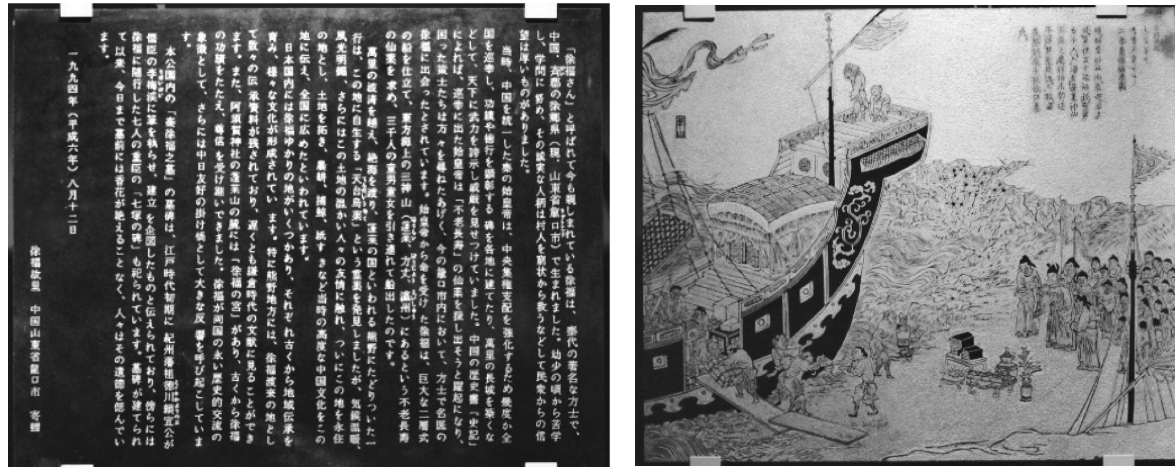 「徐福さん」と呼ばれて今も親しまれている徐福は、秦代の著名な方士で、
中国、斉郡の徐郷県(現、山東省龍口市)で生まれました。幼少の頃から苦学
し、学問に努め、その誠実な人柄は村人を窮状から救うなどして民衆からの信
望は厚いものがありました。
当時、中国を統一した秦の始皇帝は、中央集権支配を強化するため幾度か全
国を巡幸し、功績や徳行を顕彰する碑を各地に建てたり、萬里の長城を築くな
どして、天下に武力を誇示し威厳を見せつけていました。中国の歴史書『史記』
によれば、巡幸に出た始皇帝は「不老長寿」の仙薬を探し出そうと躍起になり、
困った策士たちは方々を尋ねたあげく、今の龍口市内において、方士で名医の
徐福に出会ったとされています。始皇帝から命を受けた徐福は、巨大な二層式
の船を仕立て、東方海上の三神山(蓬莱、方丈、瀛州)にあるという不老長寿
の仙薬を求め、三千人の童男童女を引き連れて船出したのです。
萬里の波濤を越え、絶海を渡り、蓬莱の国といわれる熊野にたどりついた一
行は、この地に自生する「天台烏薬」という霊薬を発見しましたが、気候温暖、
風光明媚、さらにはこの土地の温かい人々の友情に触れ、ついにこの地を永住
の地とし、土地を拓き、農耕、捕鯨、紙すきなど当時の高度な中国文化をこの
地に伝え、全国に広めたといわれています。
日本国内には徐福ゆかりの地がいくつかあり、それぞれ古くから地域伝承を
育み、様々な文化が形成されています。特に熊野地方には、徐福渡来の地とし
て数々の伝承資料が残されており、遅くとも鎌倉時代の文献に見ることができ
ます。また、阿須賀神社の蓬莱山の麓には「徐福の宮」があり、古くから徐福
の功績をたたえ、尊信を受け継いできました。徐福が両国の永い歴史的交流の
象徴として、さらには中日友好の掛け橋として大きな反響を呼び起こしていま
す。
本公園内の「秦徐福之墓」の墓碑は、江戸時代初期に紀州藩祖徳川頼宣公が
儒臣の李梅渓に筆を執らせ、建立を企図したものと伝えられており、傍らには
徐福に随行した七人の重臣の「七塚の碑」も祀られています。墓碑が建てられ
て以来、今日まで墓前には香花が絶えることなく、人々はその遺徳を偲んでい
ます。
一九九四年(平成六年)八月十二日
徐福故里 中国山東省龍口市 寄贈